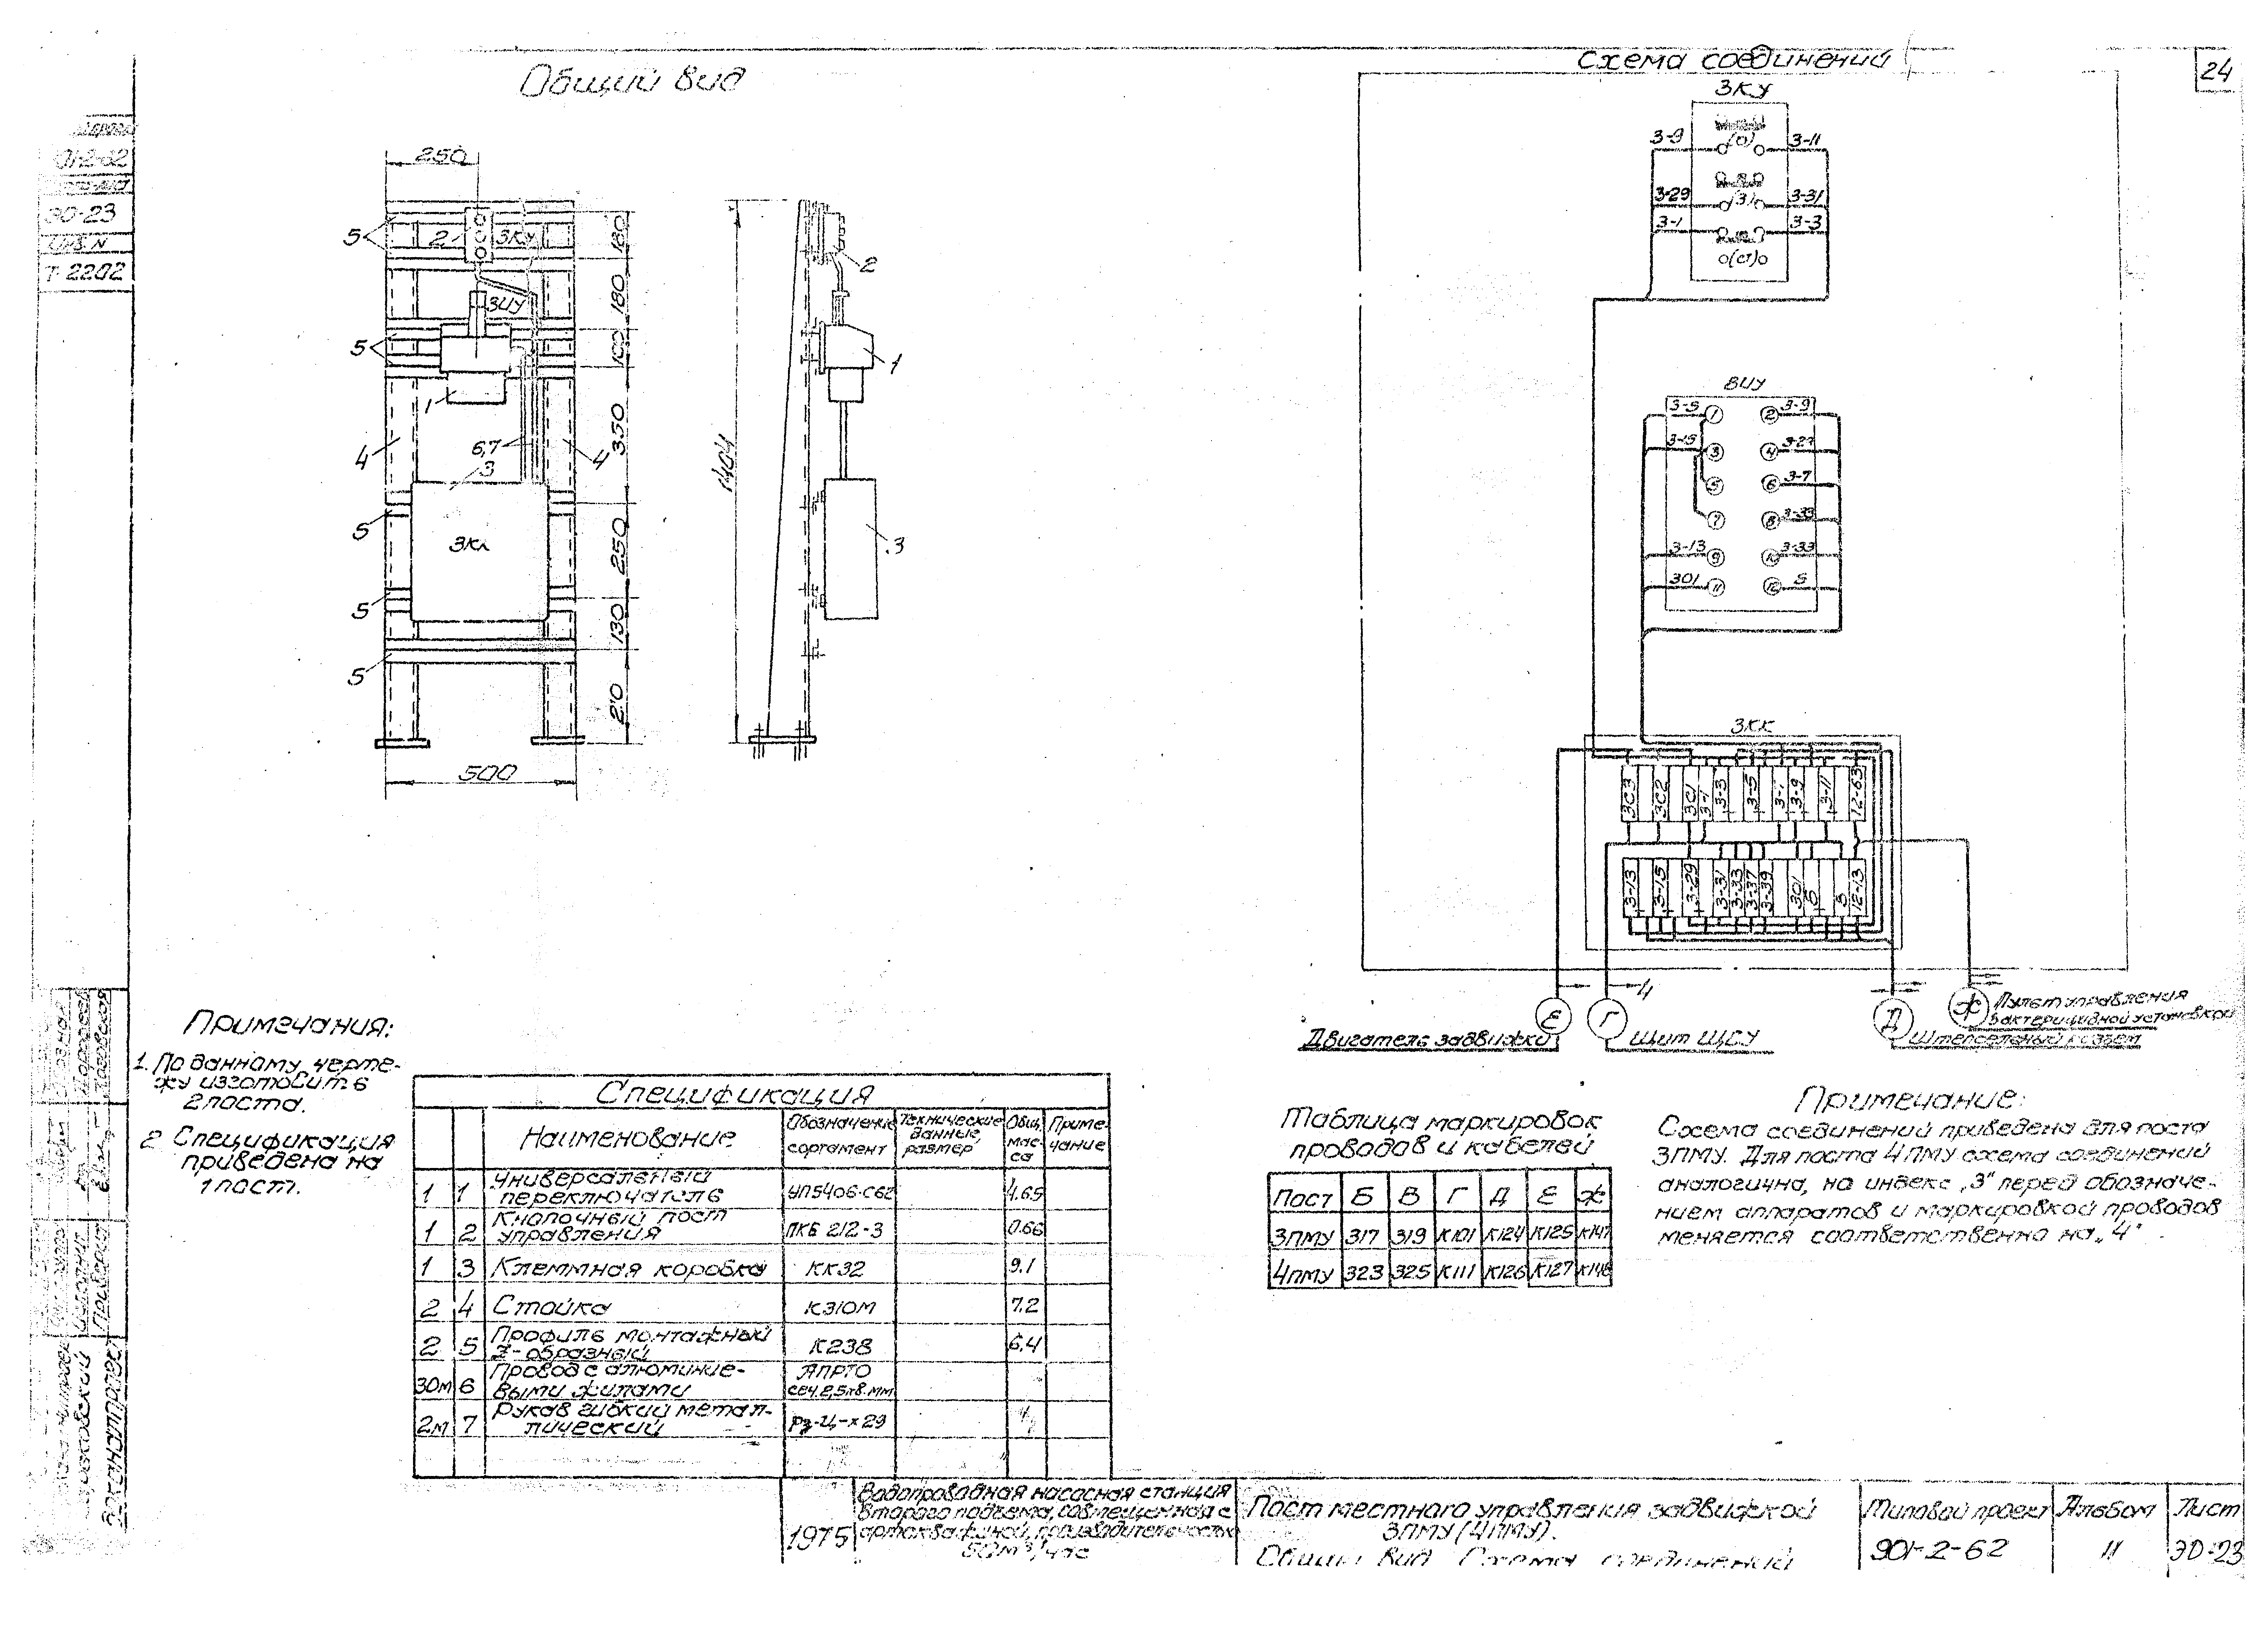 Общий вид
Схема соединений
24
901-2-62
ЭО-23
Инв. N
Т-2202
250
5
2
3КУ
180
3ИУ
180
5
100
1
350
4
6,7
3
4
5
3КК
250
5
130
5
210
500
1404
2
1
3
3КУ
3-9
(О)
3-11
3-29
(З)
3-31
3-1
3-3
(СТ)
ВИУ
3-5 1 2 3-9
3-15 3 4 3-27
5 6 3-7
7 8 3-33
3-13 9 10 3-33
301 11 12 5
3КК
3С3 3С2 3С1 3-1 3-3 3-5 3-7 3-9 3-11 12-63
3-13 3-15 3-29 3-31 3-33 3-37 3-39 301 Б 12-13
4
Е Г Д Ж
Двигатель задвижки
Щит ЩСУ
Штепсельный разъем
Пульт управления
бактерицидной установкой
Примечания:
1. По данному черте-
жу изготовить
2 поста.
2 Спецификация
приведена на
1 пост.
Спецификация
Наименование
Обозначение
сортамент
Технические
данные,
размер
Общ.
мас-
са
Приме-
чание
1 1 Универсальный
переключатель УП5406-С62 4.65
1 2 Кнопочный пост
управления ПКЕ 212-3 0.66
1 3 Клеммная коробка КК32 9.1
2 4 Стойка К310М 7.2
2 5 Профиль монтажный
Z-образный К238 6,4
30м 6 Провод с алюминие-
выми жилами АПРТО
сеч. 2,5 кв. мм
2м 7 Рукав гибкий метал-
лический РЗ-Ц-х29
Таблица маркировок
проводов и кабелей
Пост Б В Г Д Е Ж
3ПМУ 317 319 К101 К124 К125 К147
4ПМУ 323 325 К111 К126 К127 К148
Примечание:
Схема соединений приведена для поста
3ПМУ. Для поста 4ПМУ схема соединений
аналогична, но индекс „3" перед обозначе-
нием аппаратов и маркировкой проводов
меняется соответственно на „4".
1975
Водопроводная насосная станция
второго подъема, совмещенная с
артскважиной, производительностью
50 м³/час
Пост местного управления задвижкой
3ПМУ (4ПМУ).
Общий вид Схема соединений
Типовой проект
901-2-62
Альбом
II
Лист
ЭО-23